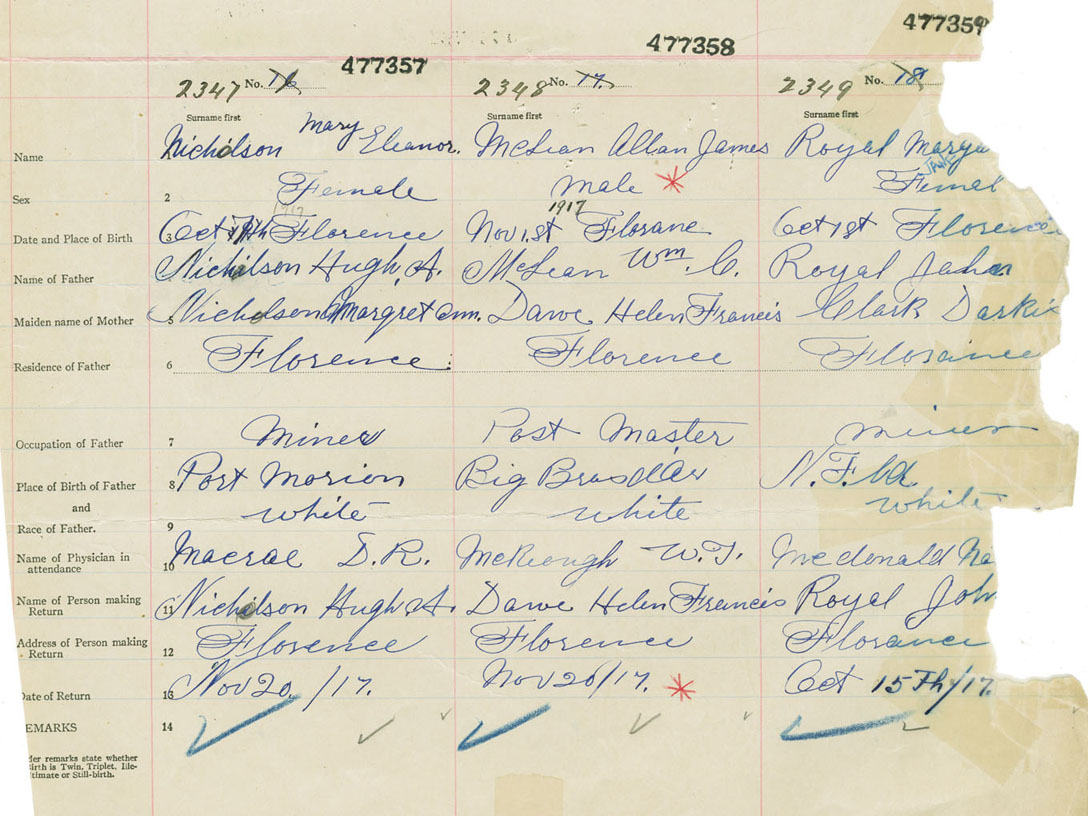 477359
477358
477357
2347 No. 16 2348 No. 17. 2349 No. 18
Surname first Surname first Surname first
Name Nicholson Mary Eleanor. McLean Allan James Royal Marga
JANE
Sex 2 Female Male Femal
1917 1917
Date and Place of Birth 3 Oct Florence Nov 1st Florane Oct 1st Florence
Name of Father Nicholson Hugh A. McLean Wm. C. Royal John
Maiden name of Mother 5 Nicholson Margret Ann. Dawe Helen Francis Clark Darki
Residence of Father 6 Florence Florence Florance
Occupation of Father 7 Miner Post Master miner
Place of Birth of Father 8 Port Morion Big Brasdor N.F.ld
and
white white white
Race of Father. 9
Name of Physician in
attendance 10 Macrae D.R. McKeough W.J. Mcdonald
Name of Person making
Return 11 Nicholson Hugh A. Dawe Helen Francis Royal Joh
Address of Person making
Return 12 Florence Florence Florance
Date of Return 13 Nov 20/17. Nov 20/17. Oct 15th/17.
EMARKS 14
der remarks state whether
Birth is Twin, Triplet, Ille-
timate or Still-birth.